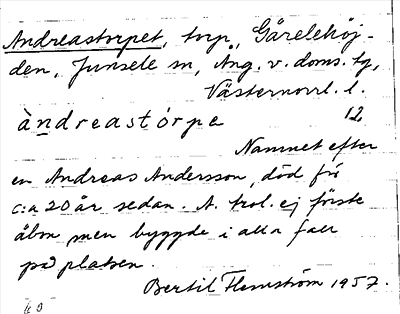 Andreastorpet, torp, Gårelehöj-
den, Junsele sn, Ång. v. doms. tg,
Västernorrl. l.
àndreastórpe 12
Namnet efter
en Andreas Andersson, död för
c:a 20 år sedan. A. trol. ej förste
åbon men byggde i alla fall
på platsen.
Bertil Flemström 1957.